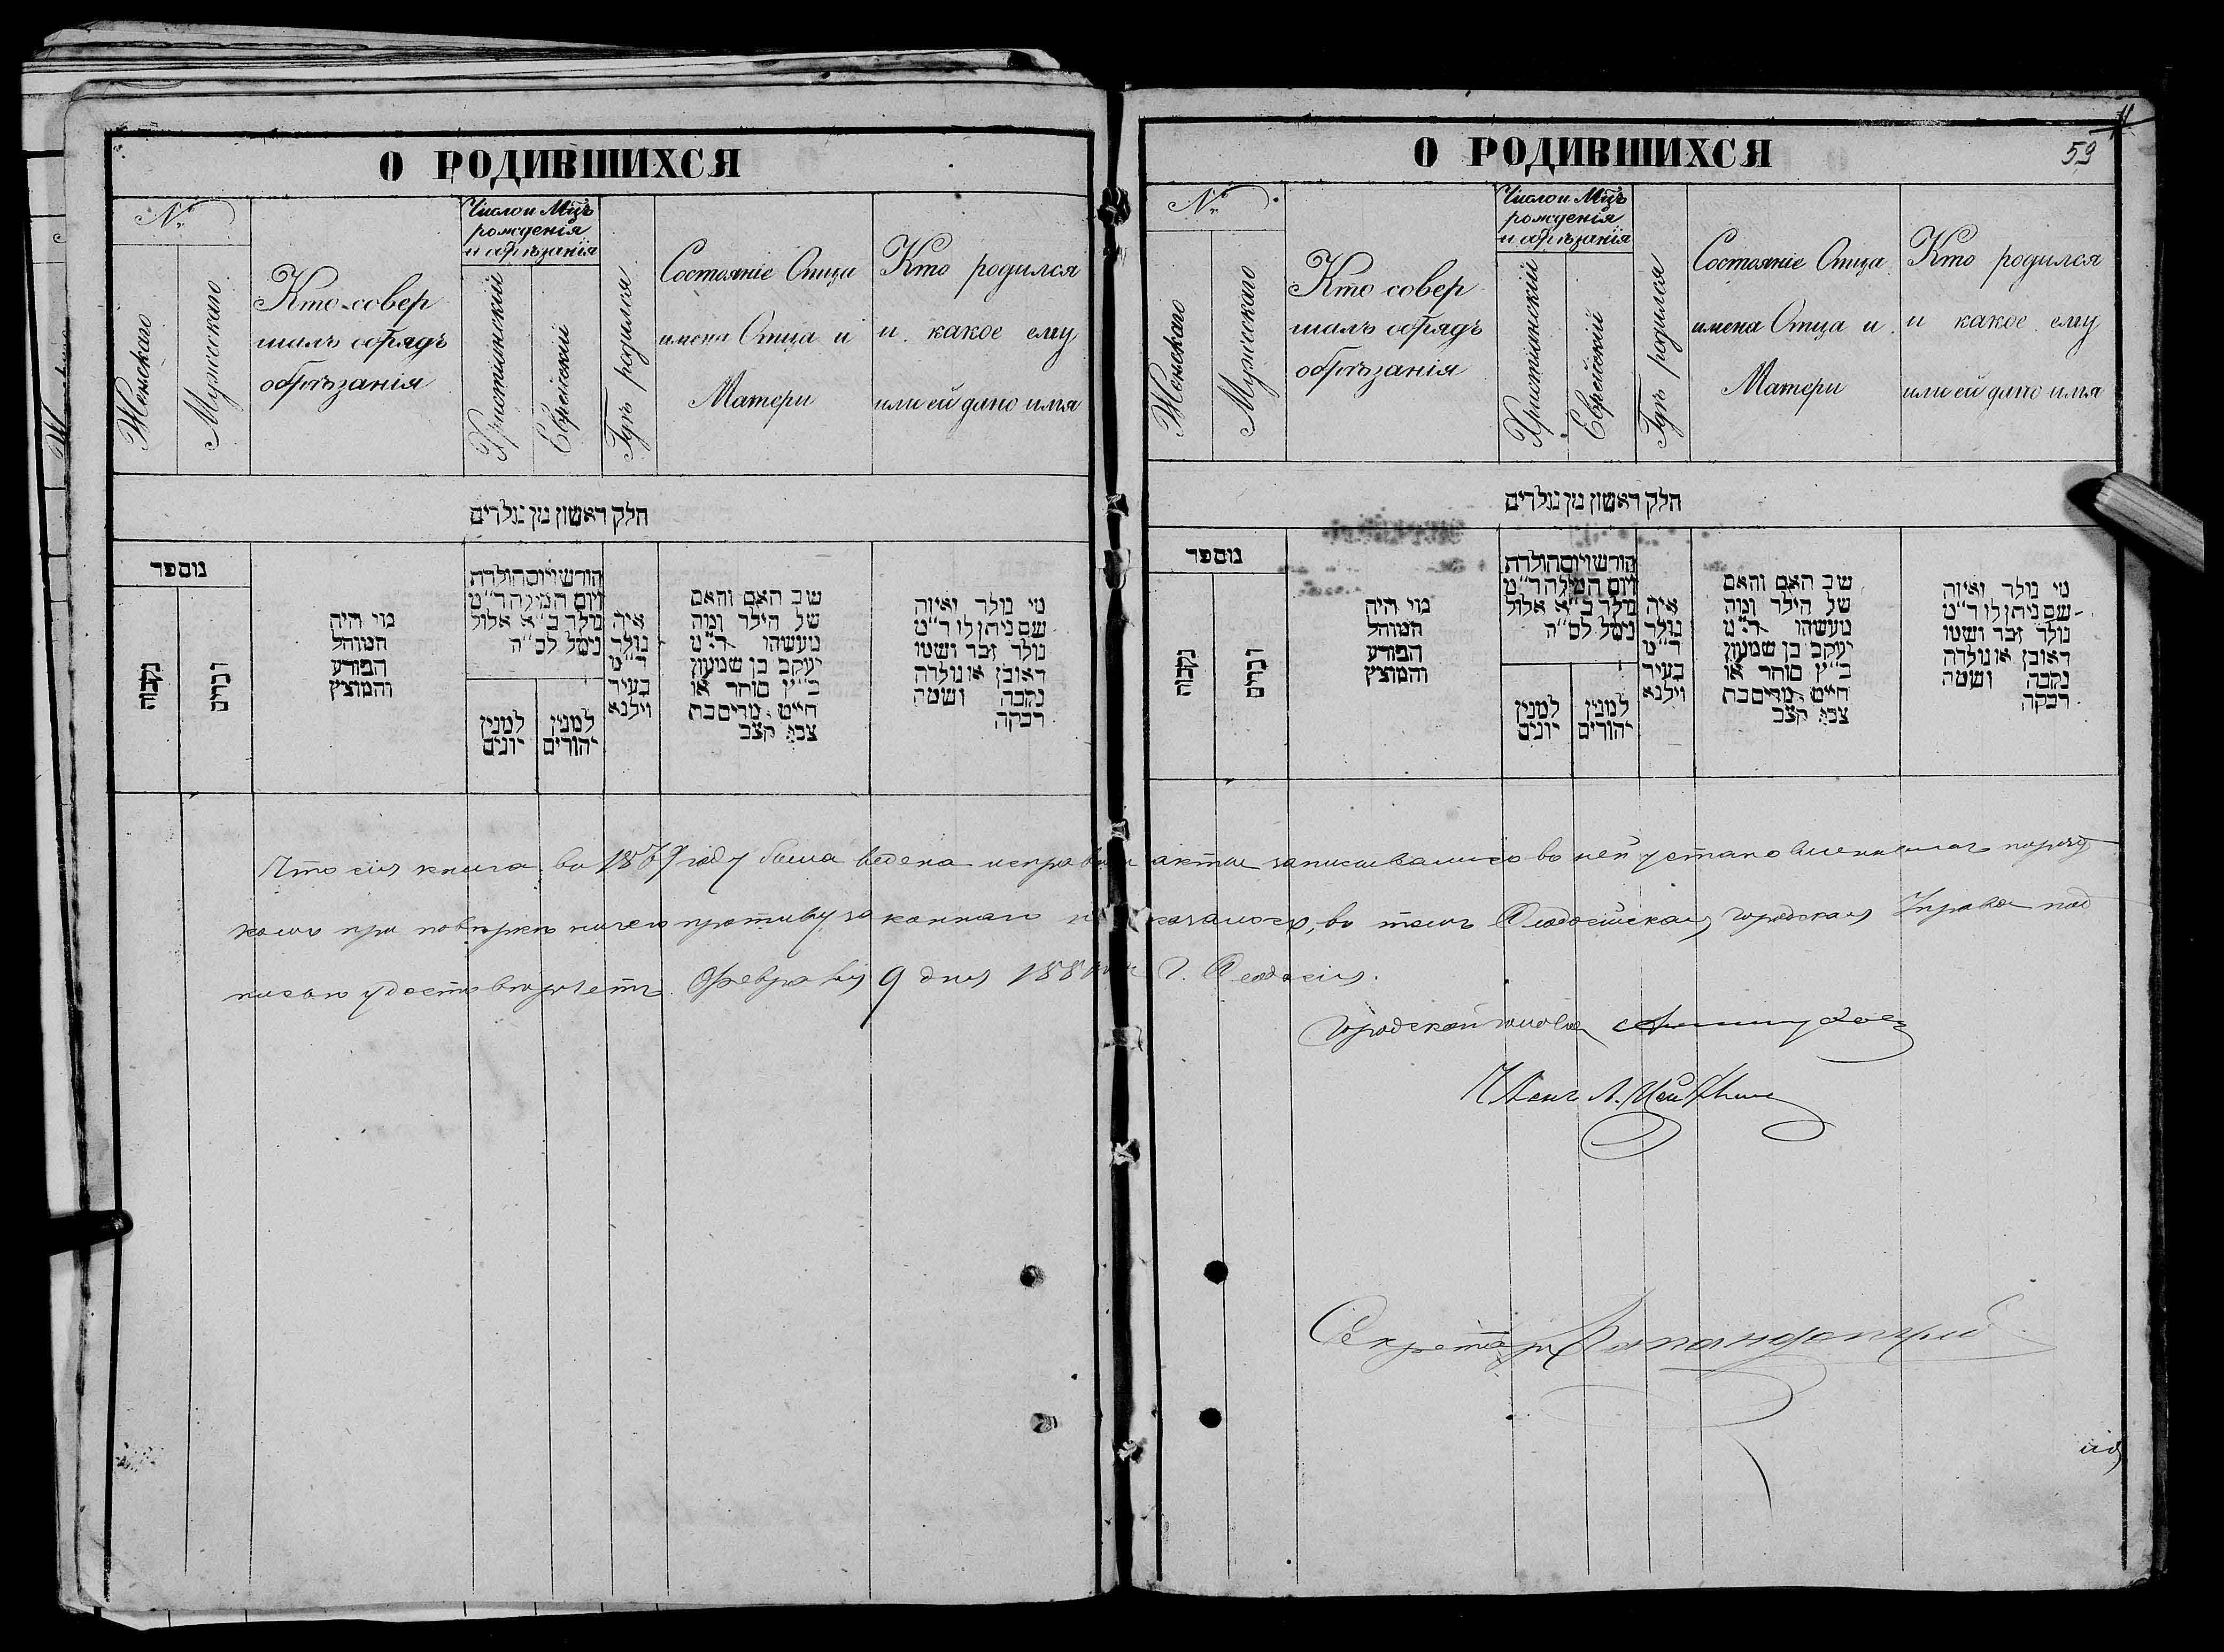 О РОДИВШИХСЯ
№
Женскаго
Мужескаго
Кто совер
шалъ обрядъ
обрѣзанія
Число и Мцъ
рожденія
и обрѣзанія
Христіанскій
Еврейскій
Гдѣ родился
Состояніе Отца
имена Отца и
Матери
Кто родился
и какое ему
или ей дано имя
חלק ראשון מן נולדים
מספר
נקבות
זכרים
מי היה
המוהל
הפורע
והמוצץ
חודש ויום הולדת
ויום המילה ד״מ
נולד ב״א אלול
נימל לס״ה
למנין
יונים
למנין
יהודים
איה
נולד
ד״מ
בעיר
וילנא
שב האם והאם
של הילד ומה
מעשהו ד״מ
יעקב בן שמעון
כ״ץ סוחר או
חייט מרים בת
צבי קצב
מי נולד ואיזה
שם ניתן לו ד״מ
נולד זכר ושמו
ראובן או נולדה
נקבה ושמה
רבקה
О РОДИВШИХСЯ
59
№
Женскаго
Мужескаго
Кто совер
шалъ обрядъ
обрѣзанія
Число и Мцъ
рожденія
и обрѣзанія
Христіанскій
Еврейскій
Гдѣ родился
Состояніе Отца
имена Отца и
Матери
Кто родился
и какое ему
или ей дано имя
חלק ראשון מן נולדים
מספר
נקבות
זכרים
מי היה
המוהל
הפורע
והמוצץ
חודש ויום הולדת
ויום המילה ד״מ
נולד ב״א אלול
נימל לס״ה
למנין
יונים
למנין
יהודים
איה
נולד
ד״מ
בעיר
וילנא
שב האם והאם
של הילד ומה
מעשהו ד״מ
יעקב בן שמעון
כ״ץ סוחר או
חייט מרים בת
צבי קצב
מי נולד ואיזה
שם ניתן לו ד״מ
נולד זכר ושמו
ראובן או נולדה
נקבה ושמה
רבקה
Что сія книга въ 1879 году была ведена исправно и акты записывались въ ней установленнымъ поряд
комъ при повѣркѣ ничего противузаконнаго не оказалось, въ томъ Ѳеодосійская городская Управа под
писью удостовѣряетъ. Февраля 9 дня 1880 г. Ѳеодосія.
Городской голова
Членъ Л.
Секретарь